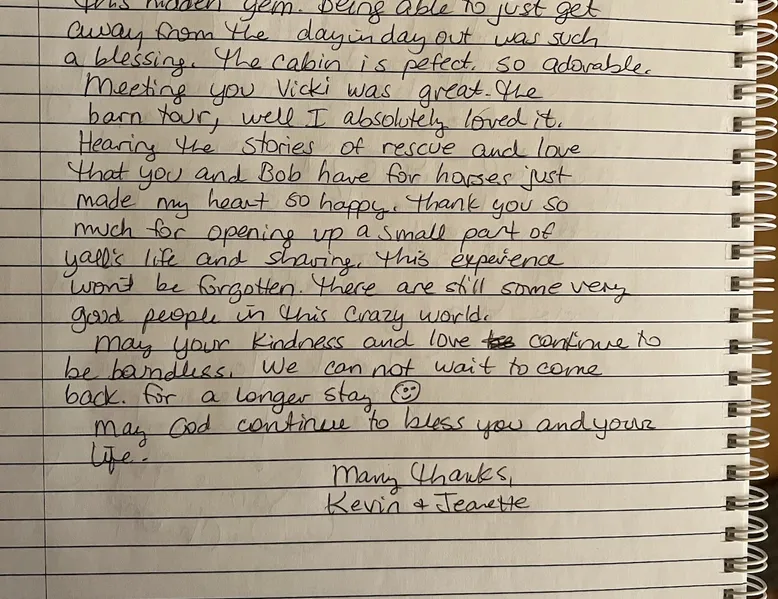 this hidden gem. Being able to just get
away from the day in day out was such
a blessing. The cabin is pefect. so adorable.
Meeting you Vicki was great. The
barn tour, well I absolutely loved it.
Hearing the stories of rescue and love
that you and Bob have for horses just
made my heart so happy. Thank you so
much for opening up a small part of
yall's life and sharing. This experience
won't be forgotten. There are still some very
good people in this crazy world.
May your kindness and love continue to
be boundless. We can not wait to come
back. for a longer stay ☺
May God continue to bless you and your
life.
Many thanks,
Kevin + Jeanette